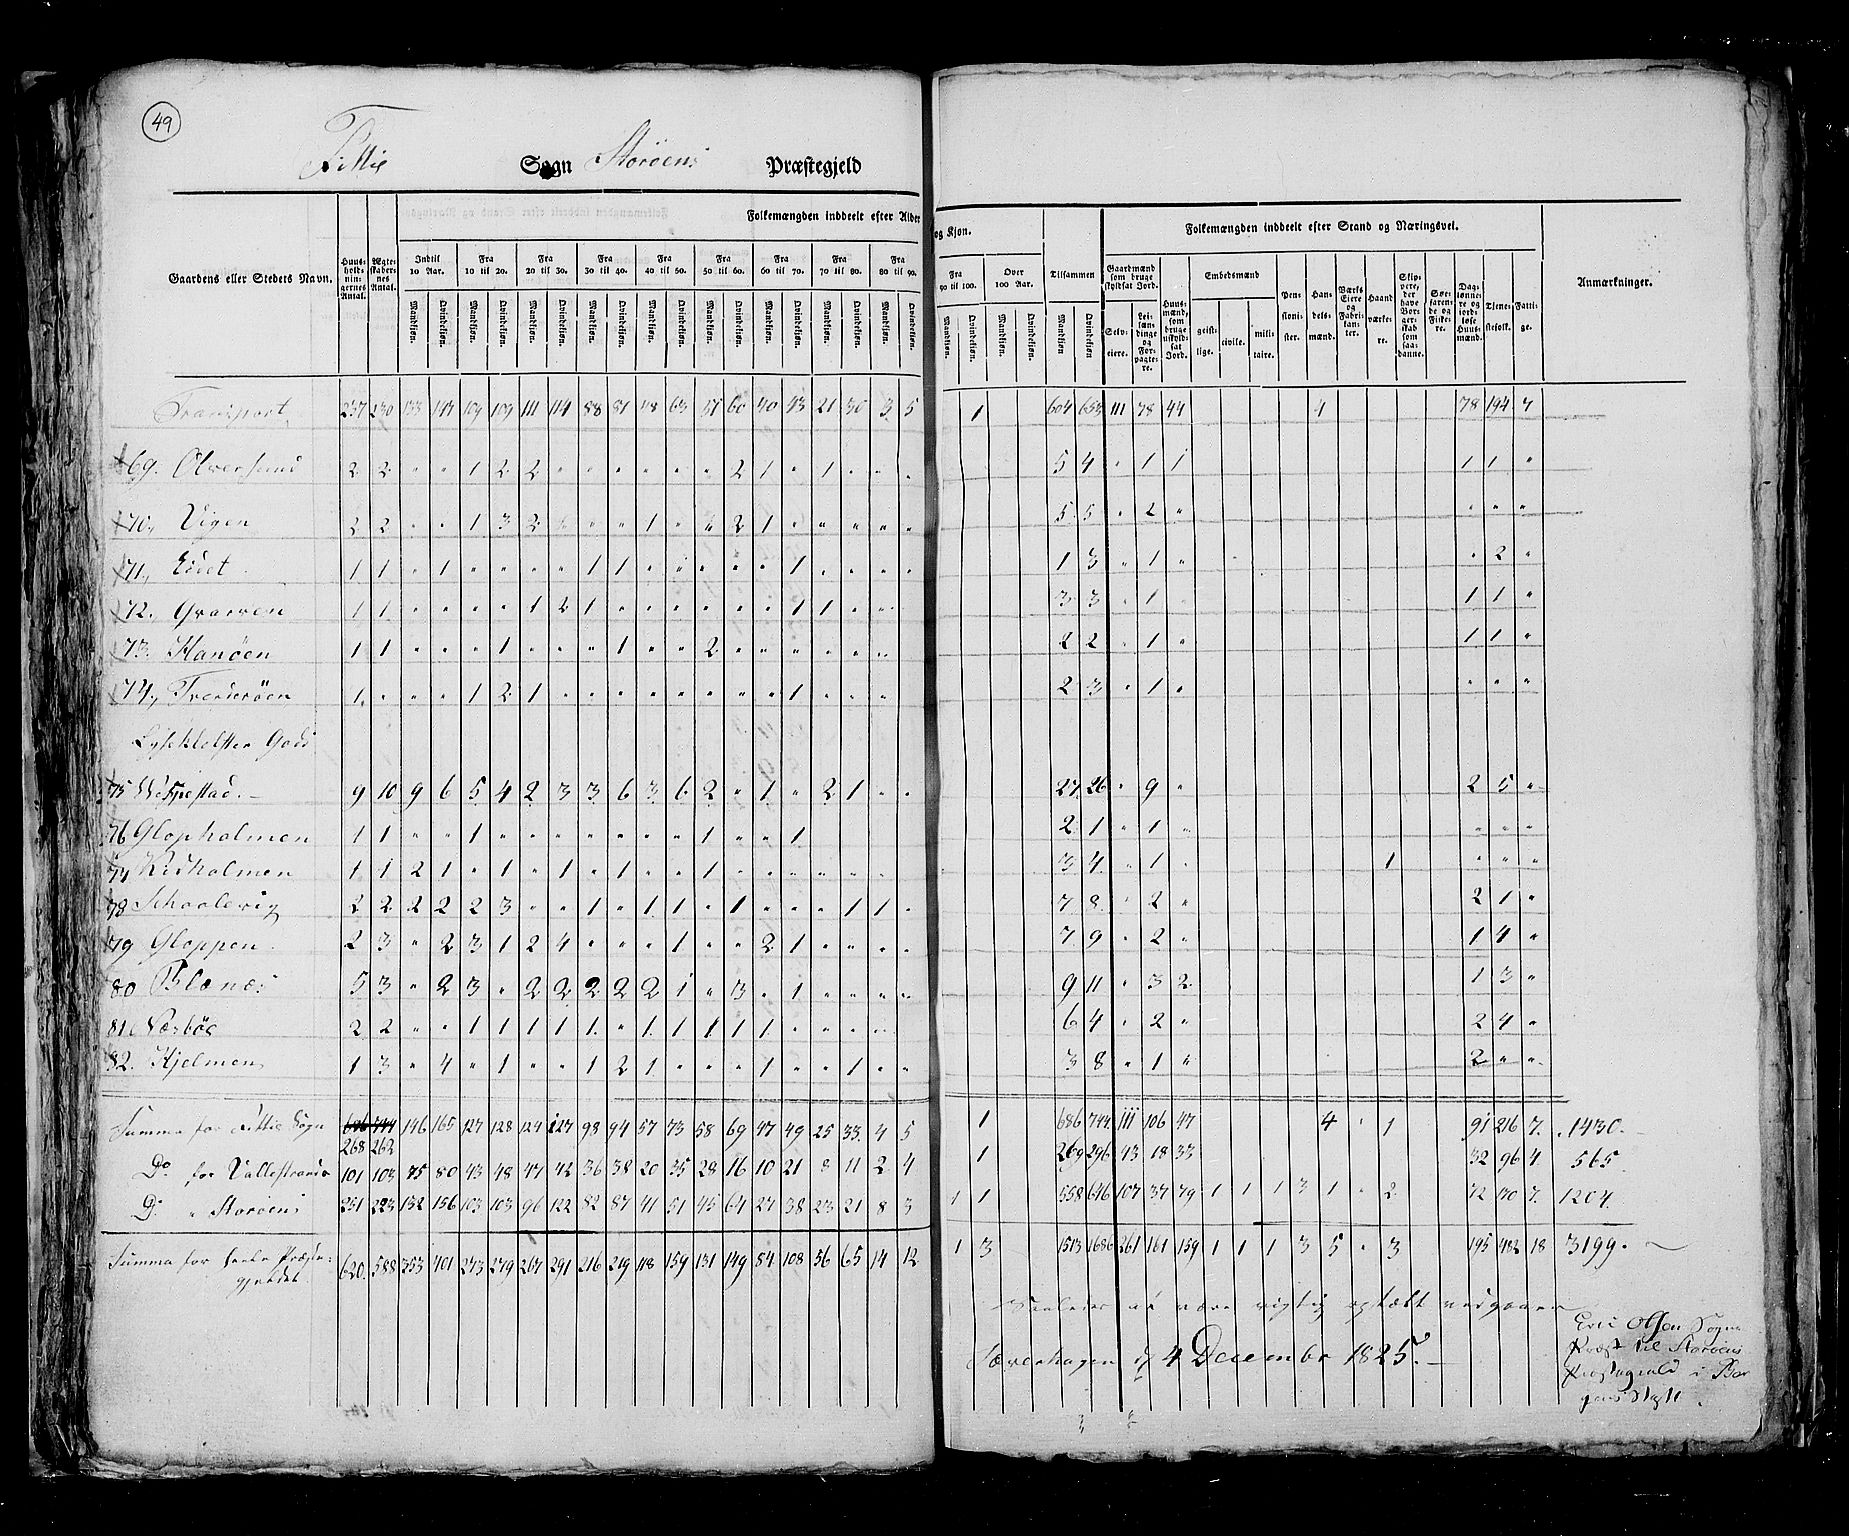 49
Fittie Sogn Storöens Præstegjeld
Folkemængden inddeelt efter Alder og Kjøn.
Folkemængden inddeelt efter Stand og Næringsvei.
Gaardens eller Stedets Navn. Huusholdningernes Antal. Ægteskabernes Antal. Indtil 10 Aar. Fra 10 til 20. Fra 20 til 30. Fra 30 til 40. Fra 40 til 50. Fra 50 til 60. Fra 60 til 70. Fra 70 til 80. Fra 80 til 90. Fra 90 til 100. Over 100 Aar. Tilsammen Gaardmænd som bruge skyldsat Jord. Huusmænd, som bruge uskyldsat Jord. Embedsmænd Pensionister. Handelsmænd. Værks Eiere og Fabrikanter. Haandværkere. Skippere, der have Borgerskab som saadanne. Søefarende og Fiskere. Daglønnere og jordløse Huusmænd. Tjenestefolk. Fattige. Anmærkninger.
Mandkjøn. Qvindekjøn. Mandkjøn. Qvindekjøn. Mandkjøn. Qvindekjøn. Mandkjøn. Qvindekjøn. Mandkjøn. Qvindekjøn. Mandkjøn. Qvindekjøn. Mandkjøn. Qvindekjøn. Mandkjøn. Qvindekjøn. Mandkjøn. Qvindekjøn. Mandkjøn. Qvindekjøn. Mandkjøn. Qvindekjøn. Mandkjøn Qvindekjøn Selveiere. Leilændinge og Forpagtere. geistlige. civile. militaire.
Transport 237 230 133 143 109 109 111 114 88 81 48 63 51 60 40 43 21 30 3 5 1 604 653 111 78 44 4 78 194 7
69. Olversund 2 2 " " 1 2 2 " " " " " " 2 1 " 1 " " " 5 4 " 1 1 1 1 "
70. Vigen 2 2 " " 1 3 2 " " " 1 " " 2 1 " " " " " 5 5 " 2 " " " "
71. Eidet 1 1 " 1 " " " " 1 1 " " " " " 1 " " " " 1 3 " 1 " " 2 "
72. Qvarven 1 1 " " " " 1 2 1 " " " " " " 1 1 " " " 3 3 " 1 " 1 1 "
73. Hanöen 1 1 " " " 1 " " " 1 " " 2 " " " " " " " 2 2 " 1 " 1 1 "
74. 1 " " " 1 2 1 " " " " " " " " 1 " " " 2 3 " 1 " " " "
Gods
75 9 10 9 6 5 4 2 3 3 6 3 6 2 " 1 " 2 1 " " 27 26 " 9 " 2 5 "
76 Glopholmen 1 1 " " 1 " " " " " " " 1 " " 1 2 1 " 1 " " " "
77 Kidholmen 1 1 2 1 " 1 " 1 " 1 " " 1 " " " " " " " 3 4 " 1 " 1 " " "
78 Skaalevig 2 2 2 2 2 3 " " 1 " 1 1 " 1 " " " 1 1 " 7 8 " 2 " 2 1 "
79 Gloppen 2 3 " 2 3 1 2 4 " " " 1 " " 2 1 " " " " 7 9 " 2 " 1 4 "
80 Blænes 5 3 " 2 3 " 2 2 2 2 2 1 " 3 " 1 " " " " 9 11 " 3 2 1 3 "
81 Nesböe 2 2 " " 1 1 1 1 1 " 1 1 1 1 1 " " " " " 6 4 " 2 " 2 4 "
82. Hjelmen 1 3 " 4 " 1 " " 1 2 1 " " " 1 " " 1 " " 3 8 " 1 " 2 " "
Summa for Fittie Sogn 686 744 146 165 127 128 124 127 98 94 57 73 58 69 47 49 25 33 4 5 1 686 744 111 106 47 4 " 1 91 216 7. 1430.
268 262
Do for Vallestrands 101 103 75 80 43 48 47 42 36 38 20 35 28 16 10 21 8 11 2 4 1 269 296 43 18 33 32 96 4. 565.
Do " Storöens 251 223 132 156 103 103 96 122 82 87 41 51 45 64 27 38 23 21 8 3 1 1 558 646 107 37 79 1 1 1 3 1 " 2 72 170 7. 1204.
Summa for heele Præste-
gjeldet 620. 588 353 401 273 279 267 291 216 219 118 159 131 149 84 108 56 65 14 12 1 3 1513 1686 261 161 159 1 1 1 3 5 " 3 195 482 18 3199.
Saaledes at være rigtig optælt vedgaaer
4 Decembr 1825.
Olsen Sogne
Præst til Storöens
Præstegield i Ber
gens Stift